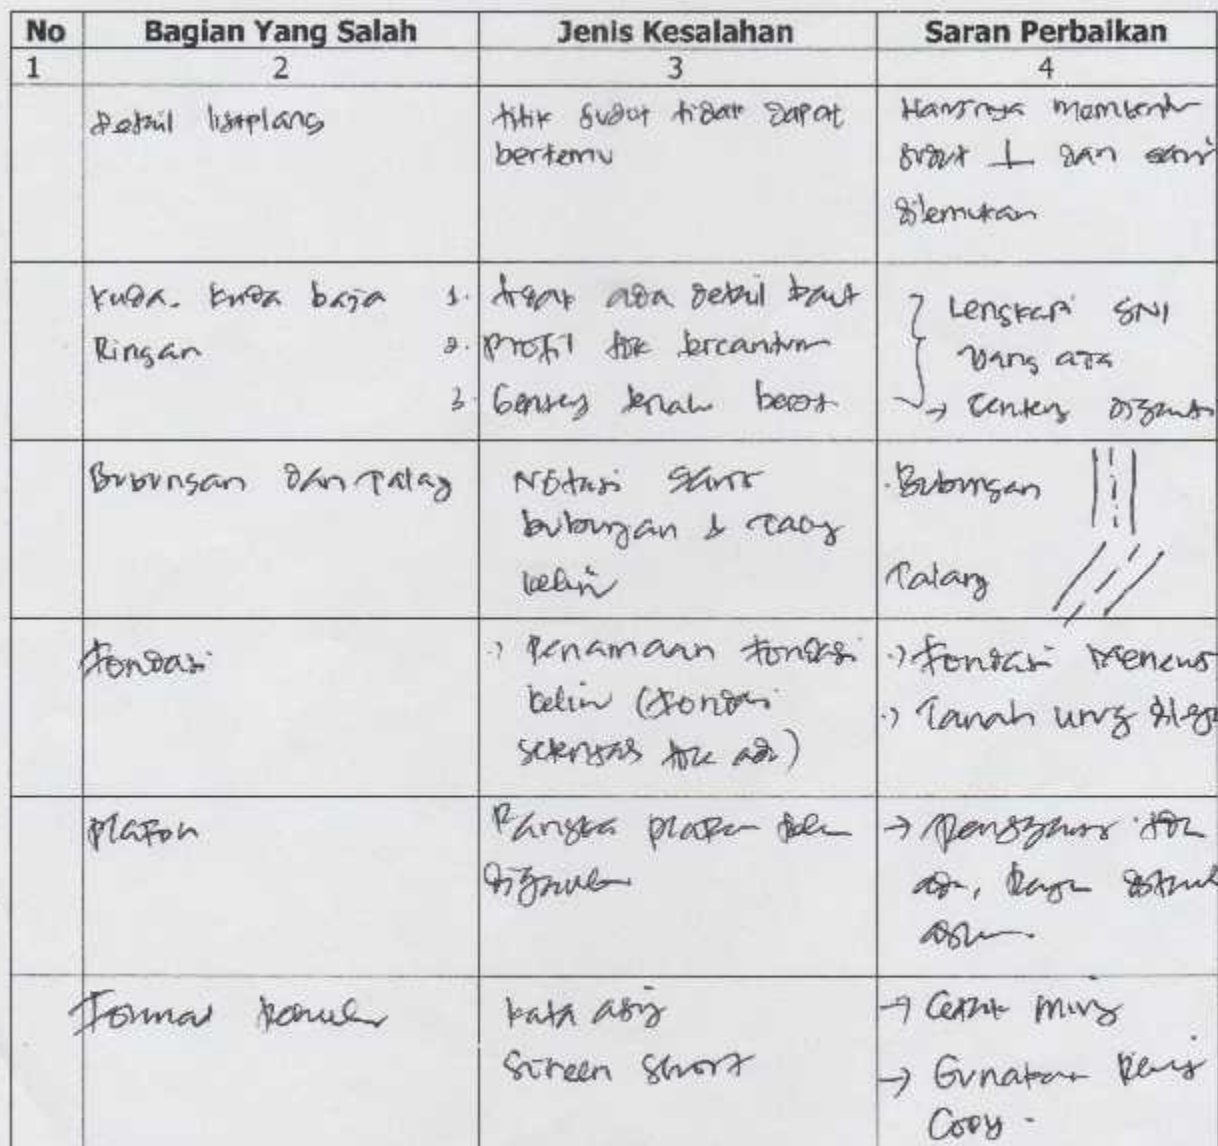 No Bagian Yang Salah Jenis Kesalahan Saran Perbaikan
1 2 3 4
Detail listplang
titik sudut tidak dapat
bertemu
Harusnya membentuk
sudut ⊥ dan
ditemukan
Kuda-kuda baja
Ringan
1. tidak ada detail baut
2. Profil tdk tercantum
3. Genteng tanah berat
Lengkapi SNI
yang ada
→ Genteng diganti
Bubungan dan Talang
Notasi garis
bubungan & Talang
keliru
Bubungan
Talang
Fondasi
Penamaan fondasi
keliru (fondasi
tdk ada)
Fondasi menerus
Tanah urug
Plafon
Rangka plafon
→ tdk
Format
kata asing
Screen short
→ Cetak miring
→ Gunakan
Copy.